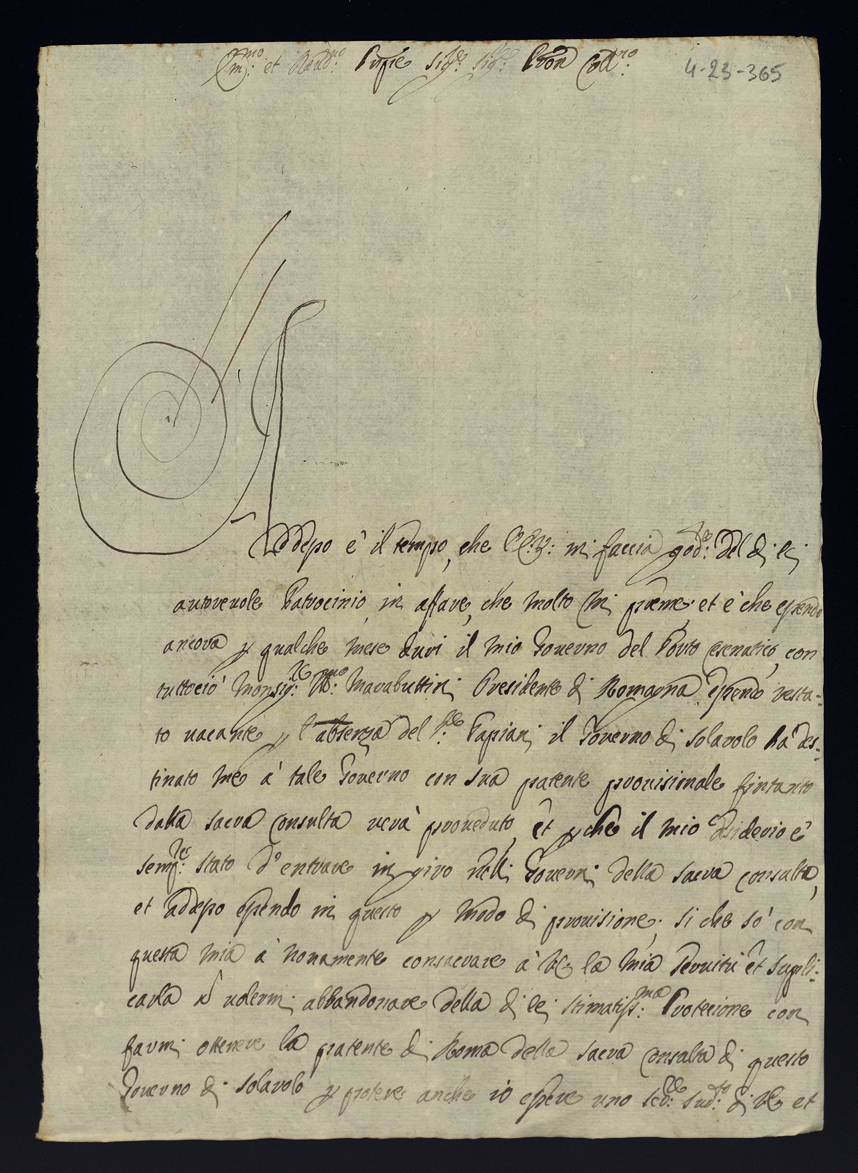 Em.mo et Rev.mo Prñpe Sig.re Sig.re Pron Coll.mo
4-23-365
Addeßo è il tempo, che l'E.V: mi faccia god.re del di lei
autorevole Patrocinio in affare, che molto mi preme, et è che eßendo
ancora p qualche mese duri il mio Governo del Porto Cesenatico, con
tuttociò Monsig.re Marabuttini Presidente di Romagna eßendo resta-
to vacante p l'absenza del Papiani il Governo di Solarolo hà des-
tinato me à tale Governo con sua patente provisionale fintanto
dalla Sacra Consulta verà proveduto, et pche il mio desiderio è
semp.re stato d'entrare in giro nelli Governi della Sacra Consulta,
et addeßo eßendo in questo p modo di provisione. Si che sò con
questa mia à novamente consacrare à VE la mia servitù et suppli-
carla à volermi abbandonare della di lei stimatiss.ma Protecione con
farmi ottenere la patente di Roma della Sacra Consulta di questo
Governo di Solarolo p potere anche io eßere uno sud.to di VE et